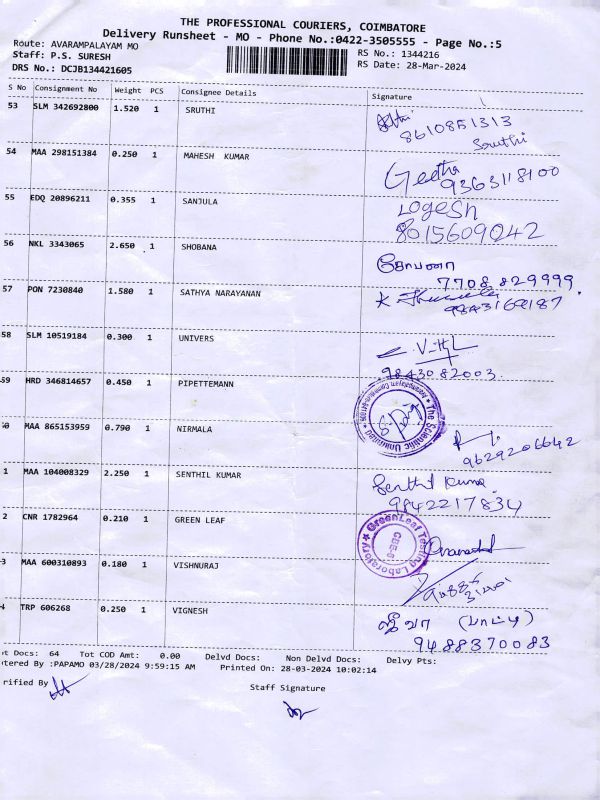 THE PROFESSIONAL COURIERS, COIMBATORE
Delivery Runsheet - MO - Phone No.:0422-3505555 - Page No.:5
Route: AVARAMPALAYAM MO
RS No.: 1344216
Staff: P.S. SURESH
RS Date: 28-Mar-2024
DRS No.: DCJB134421605
S No Consignment No Weight PCS Consignee Details Signature
53 SLM 342692800 1.520 1 SRUTHI
8610851313
Sruthi
54 MAA 298151384 0.250 1 MAHESH KUMAR
Geetha
9363118100
55 EDQ 20896211 0.355 1 SANJULA
LOGESH
8015609042
56 NKL 3343065 2.650 1 SHOBANA
கோபனா
7708829999.
57 PON 7230840 1.580 1 SATHYA NARAYANAN
9843169187
58 SLM 10519184 0.300 1 UNIVERS
9843082003
59 HRD 346814657 0.450 1 PIPETTEMANN
The Scientific
60 MAA 865153959 0.790 1 NIRMALA
9629206642
1 MAA 104008329 2.250 1 SENTHIL KUMAR
Senthil Kumar
9842217834
2 CNR 1782964 0.210 1 GREEN LEAF
GreenLeaf Testing Laboratory
CBE-6
3 MAA 600310893 0.180 1 VISHNURAJ
4 TRP 606268 0.250 1 VIGNESH
ஜீவா (பாட்டி)
9488370083
t Docs: 64 Tot COD Amt: 0.00 Delvd Docs: Non Delvd Docs: Delvy Pts:
tered By :PAPAMO 03/28/2024 9:59:15 AM Printed On: 28-03-2024 10:02:14
rified By
Staff Signature